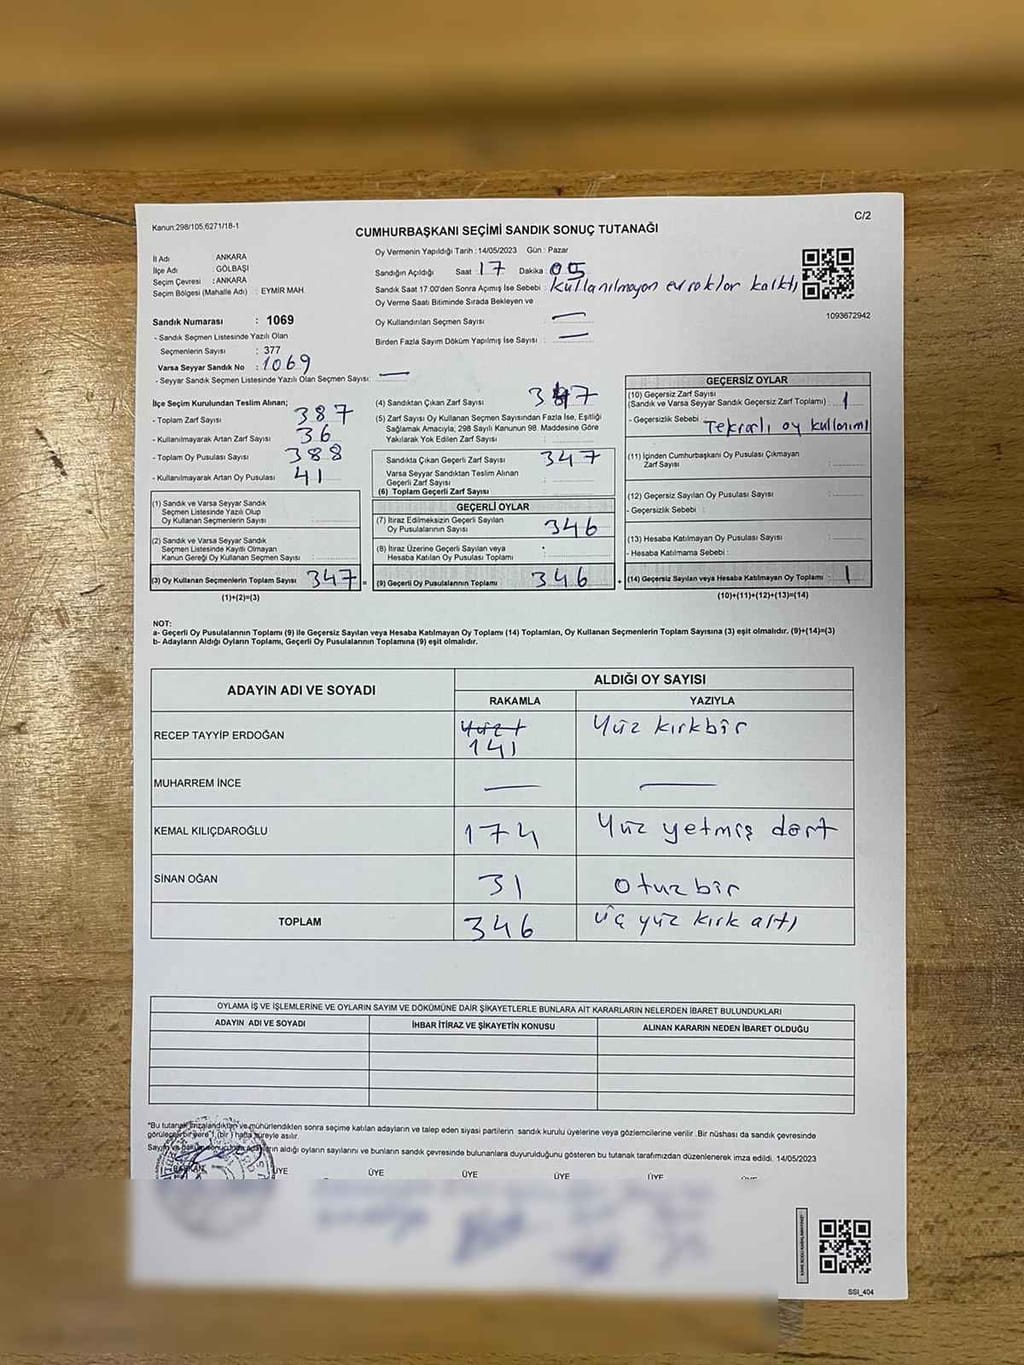 Kanun:298/105,6271/18-1
C/2
CUMHURBAŞKANI SEÇİMİ SANDIK SONUÇ TUTANAĞI
İl Adı : ANKARA
İlçe Adı : GÖLBAŞI
Seçim Çevresi : ANKARA
Seçim Bölgesi (Mahalle Adı) : EYMİR MAH.
Oy Vermenin Yapıldığı Tarih : 14/05/2023 Gün : Pazar
Sandığın Açıldığı Saat 17 Dakika 05
Sandık Saat 17:00'den Sonra Açımış İse Sebebi : Kullanılmayan evraklar kalktı
Oy Verme Saati Bitiminde Sırada Bekleyen ve
Oy Kullandırılan Seçmen Sayısı : —
Birden Fazla Sayım Döküm Yapılmış İse Sayısı : —
1093672942
Sandık Numarası : 1069
- Sandık Seçmen Listesinde Yazılı Olan
Seçmenlerin Sayısı : 377
Varsa Seyyar Sandık No : 1069
- Seyyar Sandık Seçmen Listesinde Yazılı Olan Seçmen Sayısı: —
İlçe Seçim Kurulundan Teslim Alınan;
- Toplam Zarf Sayısı 387
- Kullanılmayarak Artan Zarf Sayısı 36
- Toplam Oy Pusulası Sayısı 388
- Kullanılmayarak Artan Oy Pusulası 41
(1) Sandık ve Varsa Seyyar Sandık
Seçmen Listesinde Yazılı Olup
Oy Kullanan Seçmenlerin Sayısı
(2) Sandık ve Varsa Seyyar Sandık
Seçmen Listesinde Kayıtlı Olmayan
Kanun Gereği Oy Kullanan Seçmen Sayısı
(3) Oy Kullanan Seçmenlerin Toplam Sayısı 347 =
(1)+(2)=(3)
(4) Sandıktan Çıkan Zarf Sayısı 347
(5) Zarf Sayısı Oy Kullanan Seçmen Sayısından Fazla İse, Eşitliği
Sağlamak Amacıyla; 298 Sayılı Kanunun 98. Maddesine Göre
Yakılarak Yok Edilen Zarf Sayısı :
Sandıkta Çıkan Geçerli Zarf Sayısı 347
Varsa Seyyar Sandıktan Teslim Alınan
Geçerli Zarf Sayısı :
(6) Toplam Geçerli Zarf Sayısı
GEÇERLİ OYLAR
(7) İtiraz Edilmeksizin Geçerli Sayılan
Oy Pusulalarının Sayısı 346
(8) İtiraz Üzerine Geçerli Sayılan veya
Hesaba Katılan Oy Pusulası Toplamı :
(9) Geçerli Oy Pusulalarının Toplamı 346 +
GEÇERSİZ OYLAR
(10) Geçersiz Zarf Sayısı
(Sandık ve Varsa Seyyar Sandık Geçersiz Zarf Toplamı) : 1
- Geçersizlik Sebebi : Tekrarlı oy kullanımı
(11) İçinden Cumhurbaşkanı Oy Pusulası Çıkmayan
Zarf Sayısı :
(12) Geçersiz Sayılan Oy Pusulası Sayısı :
- Geçersizlik Sebebi :
(13) Hesaba Katılmayan Oy Pusulası Sayısı :
- Hesaba Katılmama Sebebi :
(14) Geçersiz Sayılan veya Hesaba Katılmayan Oy Toplamı : 1
(10)+(11)+(12)+(13)=(14)
NOT:
a- Geçerli Oy Pusulalarının Toplamı (9) ile Geçersiz Sayılan veya Hesaba Katılmayan Oy Toplamı (14) Toplamları, Oy Kullanan Seçmenlerin Toplam Sayısına (3) eşit olmalıdır. (9)+(14)=(3)
b- Adayların Aldığı Oyların Toplamı, Geçerli Oy Pusulalarının Toplamına (9) eşit olmalıdır.
ADAYIN ADI VE SOYADI
ALDIĞI OY SAYISI
RAKAMLA YAZIYLA
RECEP TAYYİP ERDOĞAN 141 Yüz kırkbir
MUHARREM İNCE — —
KEMAL KILIÇDAROĞLU 174 Yüz yetmiş dört
SİNAN OĞAN 31 otuzbir
TOPLAM 346 üç yüz kırk altı
OYLAMA İŞ VE İŞLEMLERİNE VE OYLARIN SAYIM VE DÖKÜMÜNE DAİR ŞİKAYETLERLE BUNLARA AİT KARARLARIN NELERDEN İBARET BULUNDUKLARI
ADAYIN ADI VE SOYADI İHBAR İTİRAZ VE ŞİKAYETİN KONUSU ALINAN KARARIN NEDEN İBARET OLDUĞU
"Bu tutanak imzalandıktan ve mühürlendikten sonra seçime katılan adayların ve talep eden siyasi partilerin sandık kurulu üyelerine veya gözlemcilerine verilir. Bir nüshası da sandık çevresinde
görülecek bir yere 1 (bir) hafta süreyle asılır.
aldığı oyların sayılarını ve bunların sandık çevresinde bulunanlara duyurulduğunu gösteren bu tutanak tarafımızdan düzenlenerek imza edildi. 14/05/2023
BAŞKAN ÜYE ÜYE ÜYE ÜYE ÜYE
SSI_404